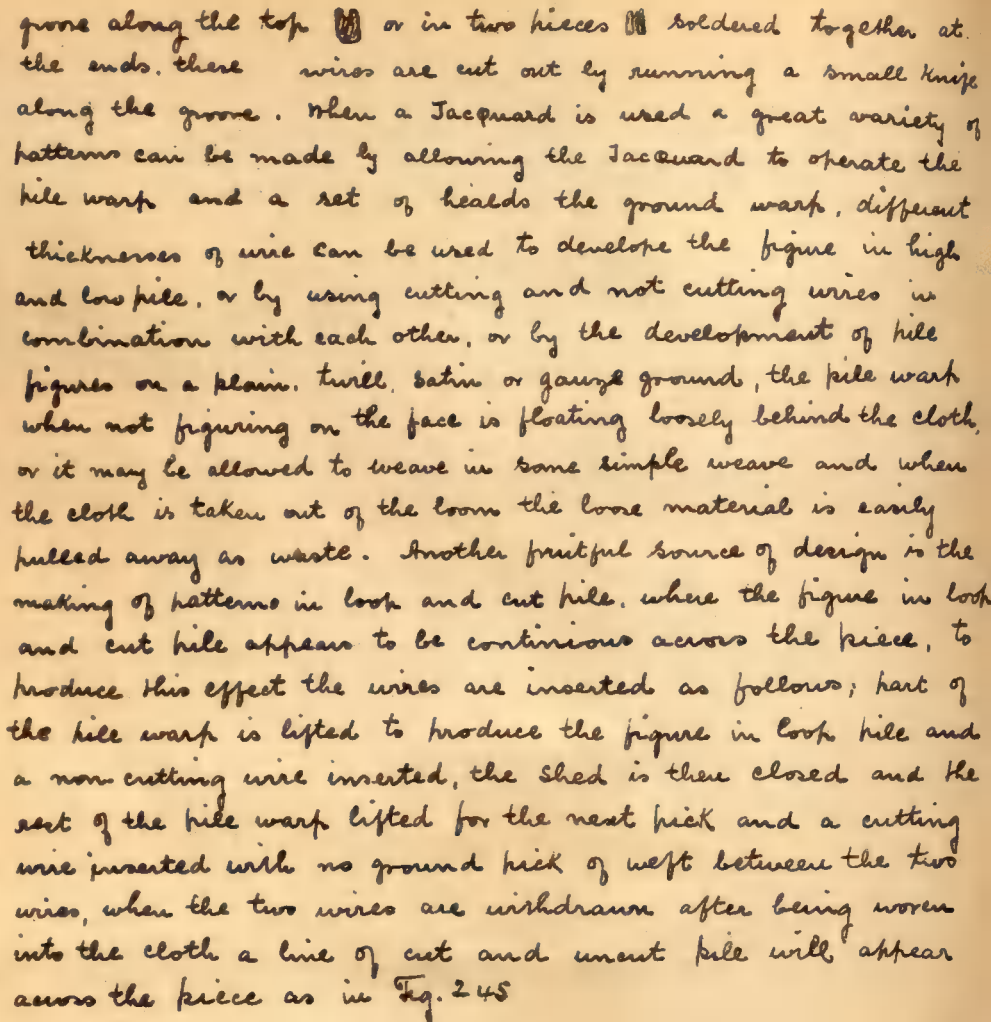 groove along the top or in two pieces soldered together at.
the ends. these wires are cut out by running a small knife
along the groove. When a Jacquard is used a great variety of
patterns can be made by allowing the Jacquard to operate the
pile warp and a set of healds the ground warp, different
thicknesses of wire can be used to develope the figure in high
and low pile, or by using cutting and not cutting wires in
combination with each other, or by the development of pile
figures on a plain. twill, satin or gauze ground, the pile warp
when not figuring on the face is floating loosely behind the cloth,
or it may be allowed to weave in some simple weave and when
the cloth is taken out of the loom the loose material is easily
pulled away as waste. Another fruitful source of design is the
making of patterns in loop and cut pile, where the figure in loop
and cut pile appears to be continious across the piece, to
produce this effect the wires are inserted as follows; part of
the pile warp is lifted to produce the figure in loop pile and
a non cutting wire inserted, the shed is then closed and the
rest of the pile warp lifted for the next pick and a cutting
wire inserted with no ground pick of weft between the two
wires, when the two wires are withdrawn after being woven
into the cloth a line of cut and uncut pile will appear
across the piece as in Fig. 245